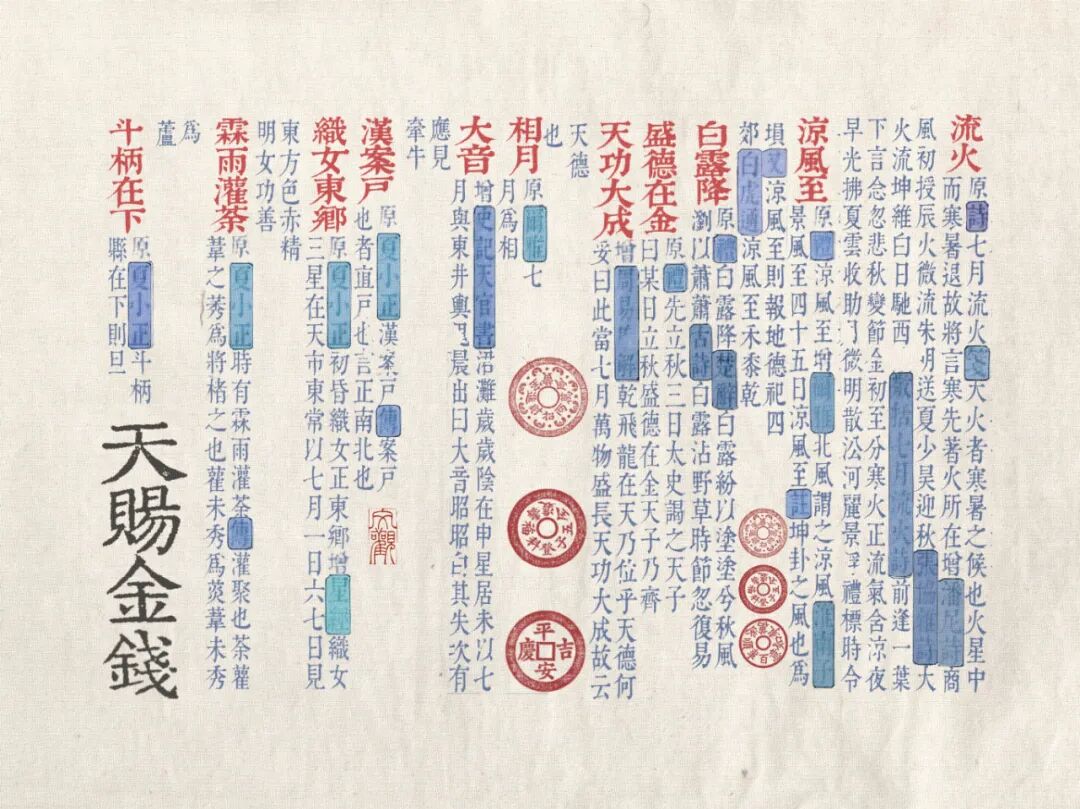 流火
原詩七月流火箋大火者寒暑之候也火星中
而寒暑退故將言寒先著火所在增潘尼詩商
風初授辰火微流朱明送夏少昊迎秋張協雜詩大
火流坤維白日馳西敬括七月流火詩前逢一葉
下言念忽悲秋變節金初至分寒火正流氣含涼夜
早光拂夏雲收助月微明散沿河麗景浮禮標時令
涼風至
原禮涼風至增爾雅北風謂之涼風淮南子
景風至四十五日涼風至註坤卦之風也為
塤又涼風至則報地德祀四
郊白虎通涼風至禾黍乾
白露降
原禮白露降楚辭白露紛以塗塗兮秋風
瀏以蕭蕭古詩白露沾野草時節忽復易
盛德在金
原禮先立秋三日太史謁之天子
曰某日立秋盛德在金天子乃齊
天功大成
增周易集解乾飛龍在天乃位乎天德何
妥曰此當七月萬物盛長天功大成故云
天德
也
相月
原爾雅七
月為相
大音
增史記天官書涒灘歲歲陰在申星居未以七
月與東井輿鬼晨出曰大音昭昭白其失次有
應見
牽牛
漢案戶
原夏小正漢案戶傳案戶
也者直戶也言正南北也
織女東鄉
原夏小正初昏織女正東鄉增星經織女
三星在天市東常以七月一日六七日見
東方色赤精
明女功善
霖雨灌荼
原夏小正時有霖雨灌荼傳灌聚也荼雚
葦之莠為將楮之也雚未秀為菼葦未秀
為
蘆
斗柄在下
原夏小正斗柄
縣在下則旦
天賜金錢
平安吉慶